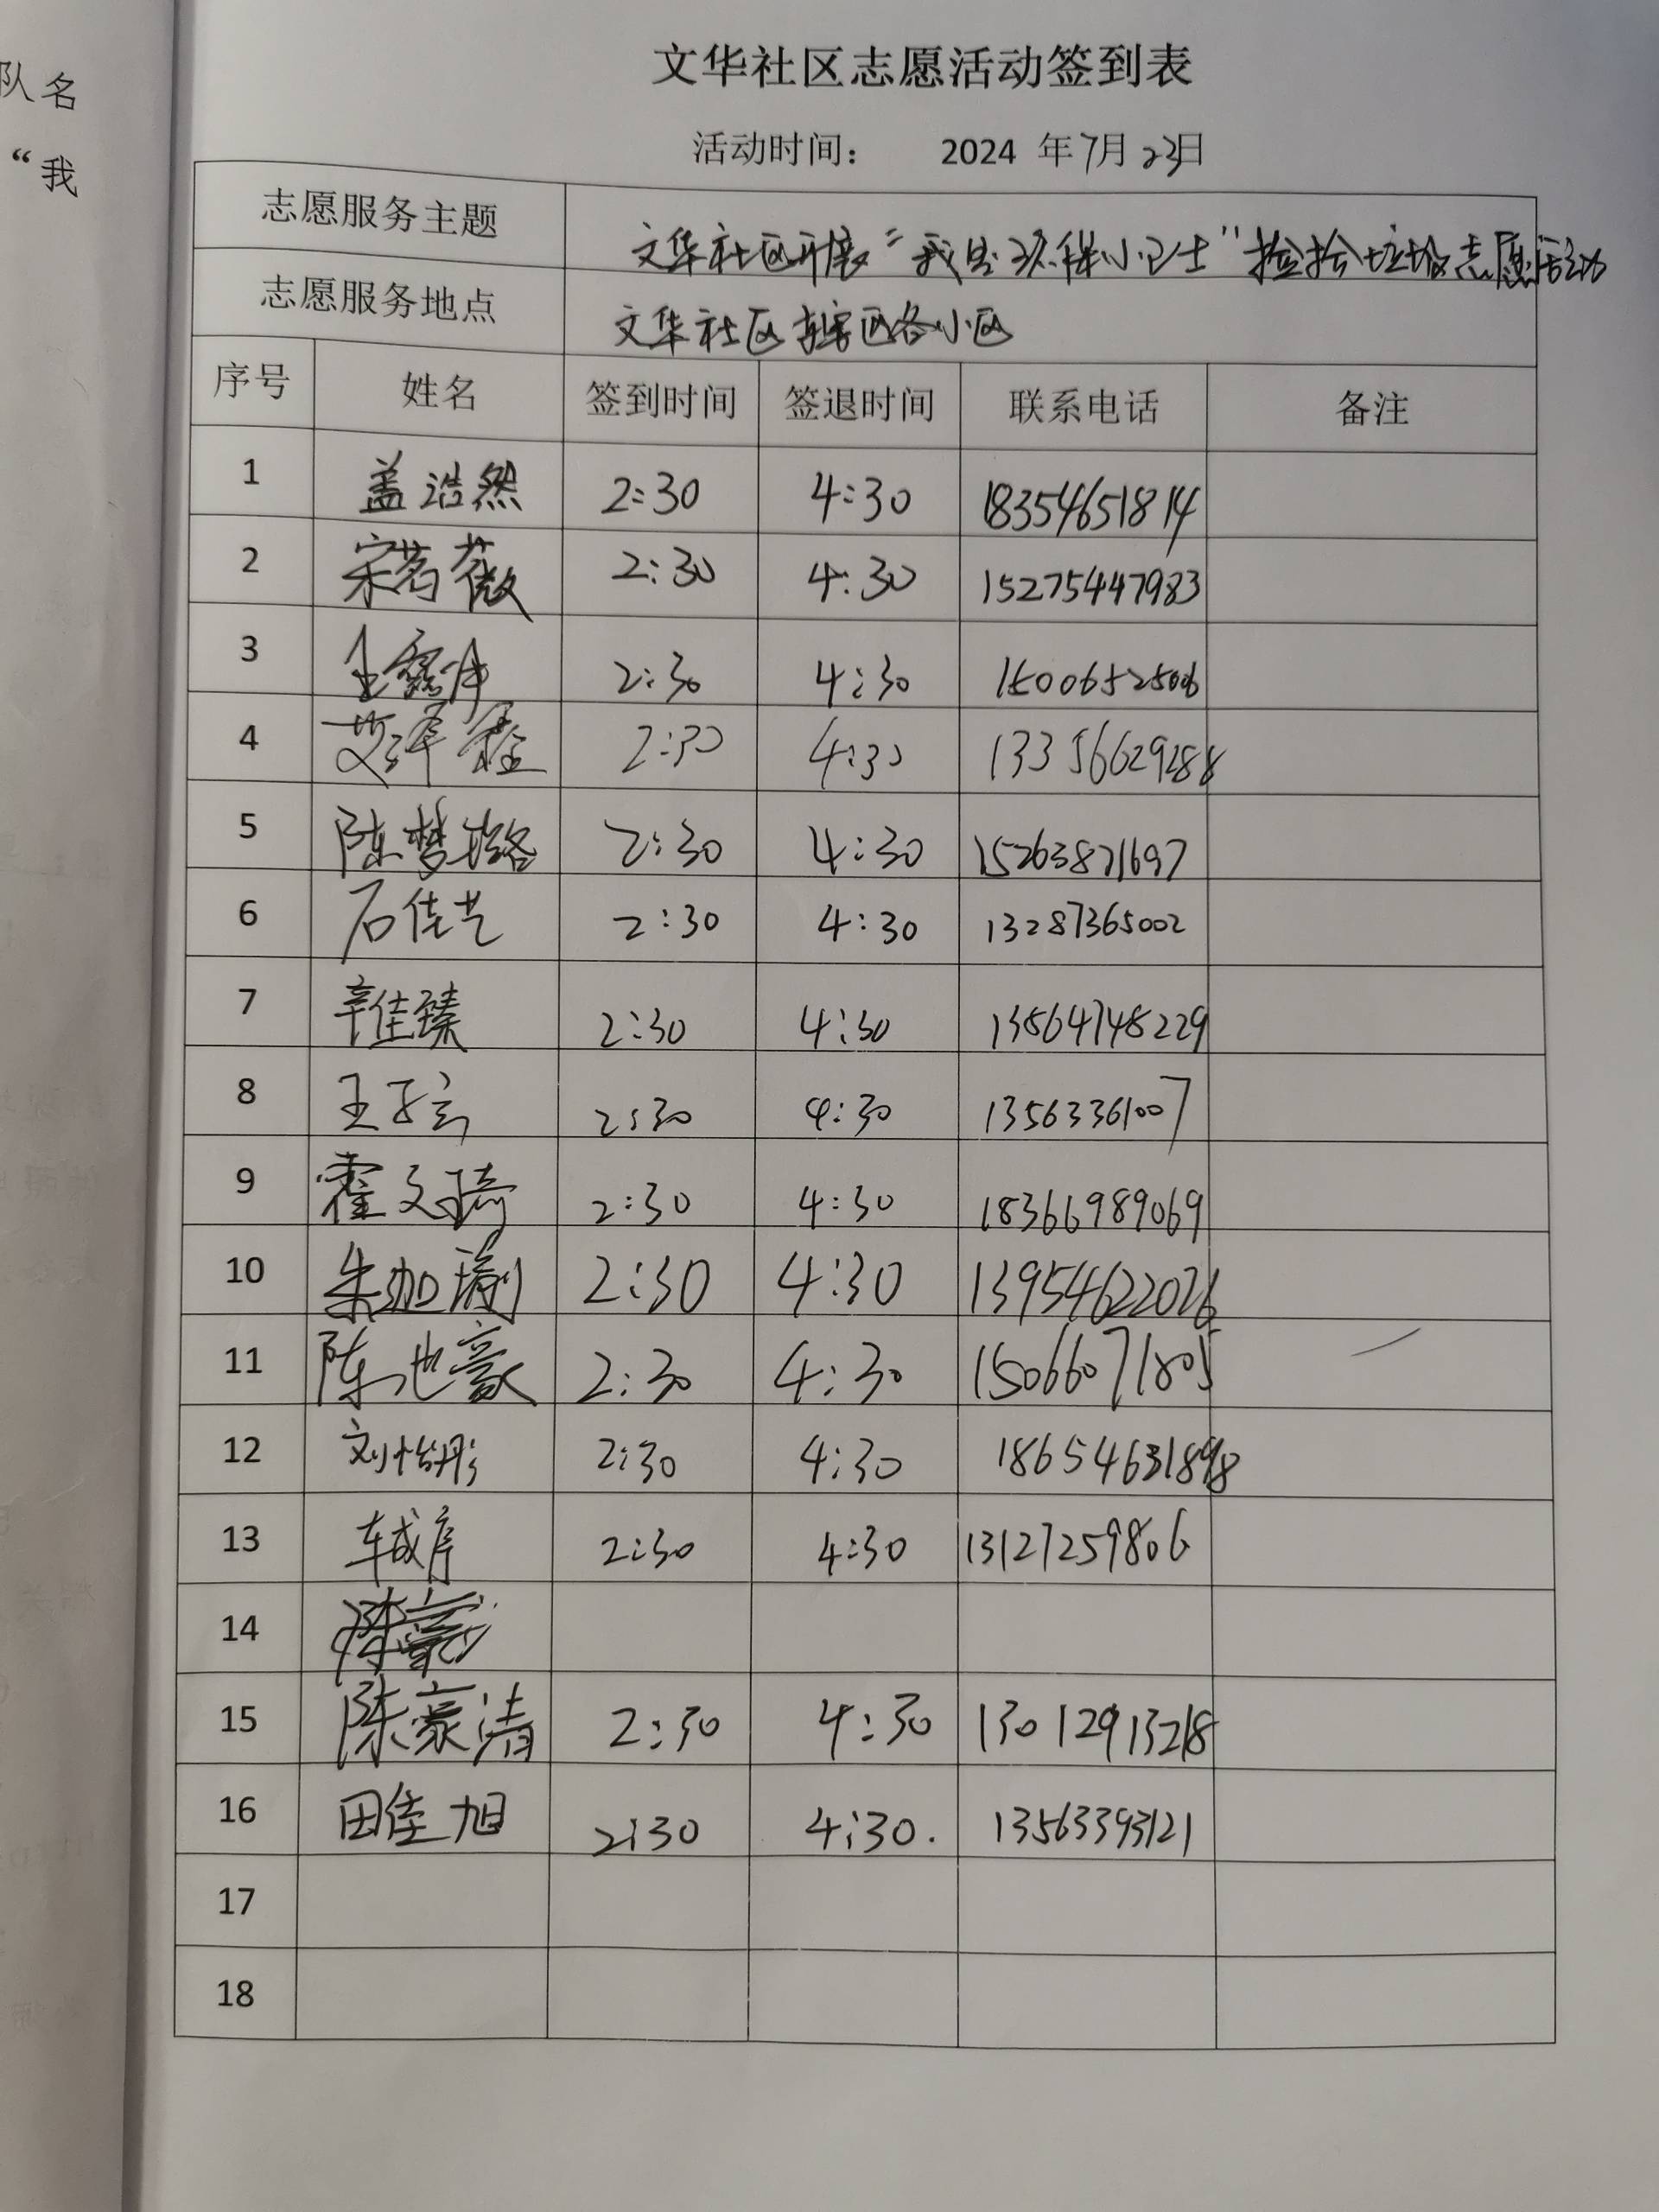 队名
“我
文华社区志愿活动签到表
活动时间： 2024 年7月23日
志愿服务主题 文华社区开展“我是环保小卫士”捡拾垃圾志愿活动
志愿服务地点 文华社区辖区各小区
序号 姓名 签到时间 签退时间 联系电话 备注
1 盖浩然 2:30 4:30 18354651814
2 宋茗薇 2:30 4:30 15275447983
3 2:30 4:30
4 艾泽鑫 2:30 4:30
5 陈梦璐 2:30 4:30 15263871697
6 石佳艺 2:30 4:30 13287365002
7 辛佳臻 2:30 4:30 13864748229
8 王子玄 2:30 4:30 13563361007
9 霍文琦 2:30 4:30 18366989069
10 朱珈瑜 2:30 4:30 13954622026
11 陈也豪 2:30 4:30 15066071805
12 刘怡彤 2:30 4:30
13 车成序 2:30 4:30 13127259806
14
15 陈豪涛 2:30 4:30 13012913218
16 田佳旭 2:30 4:30. 13563393121
17
18